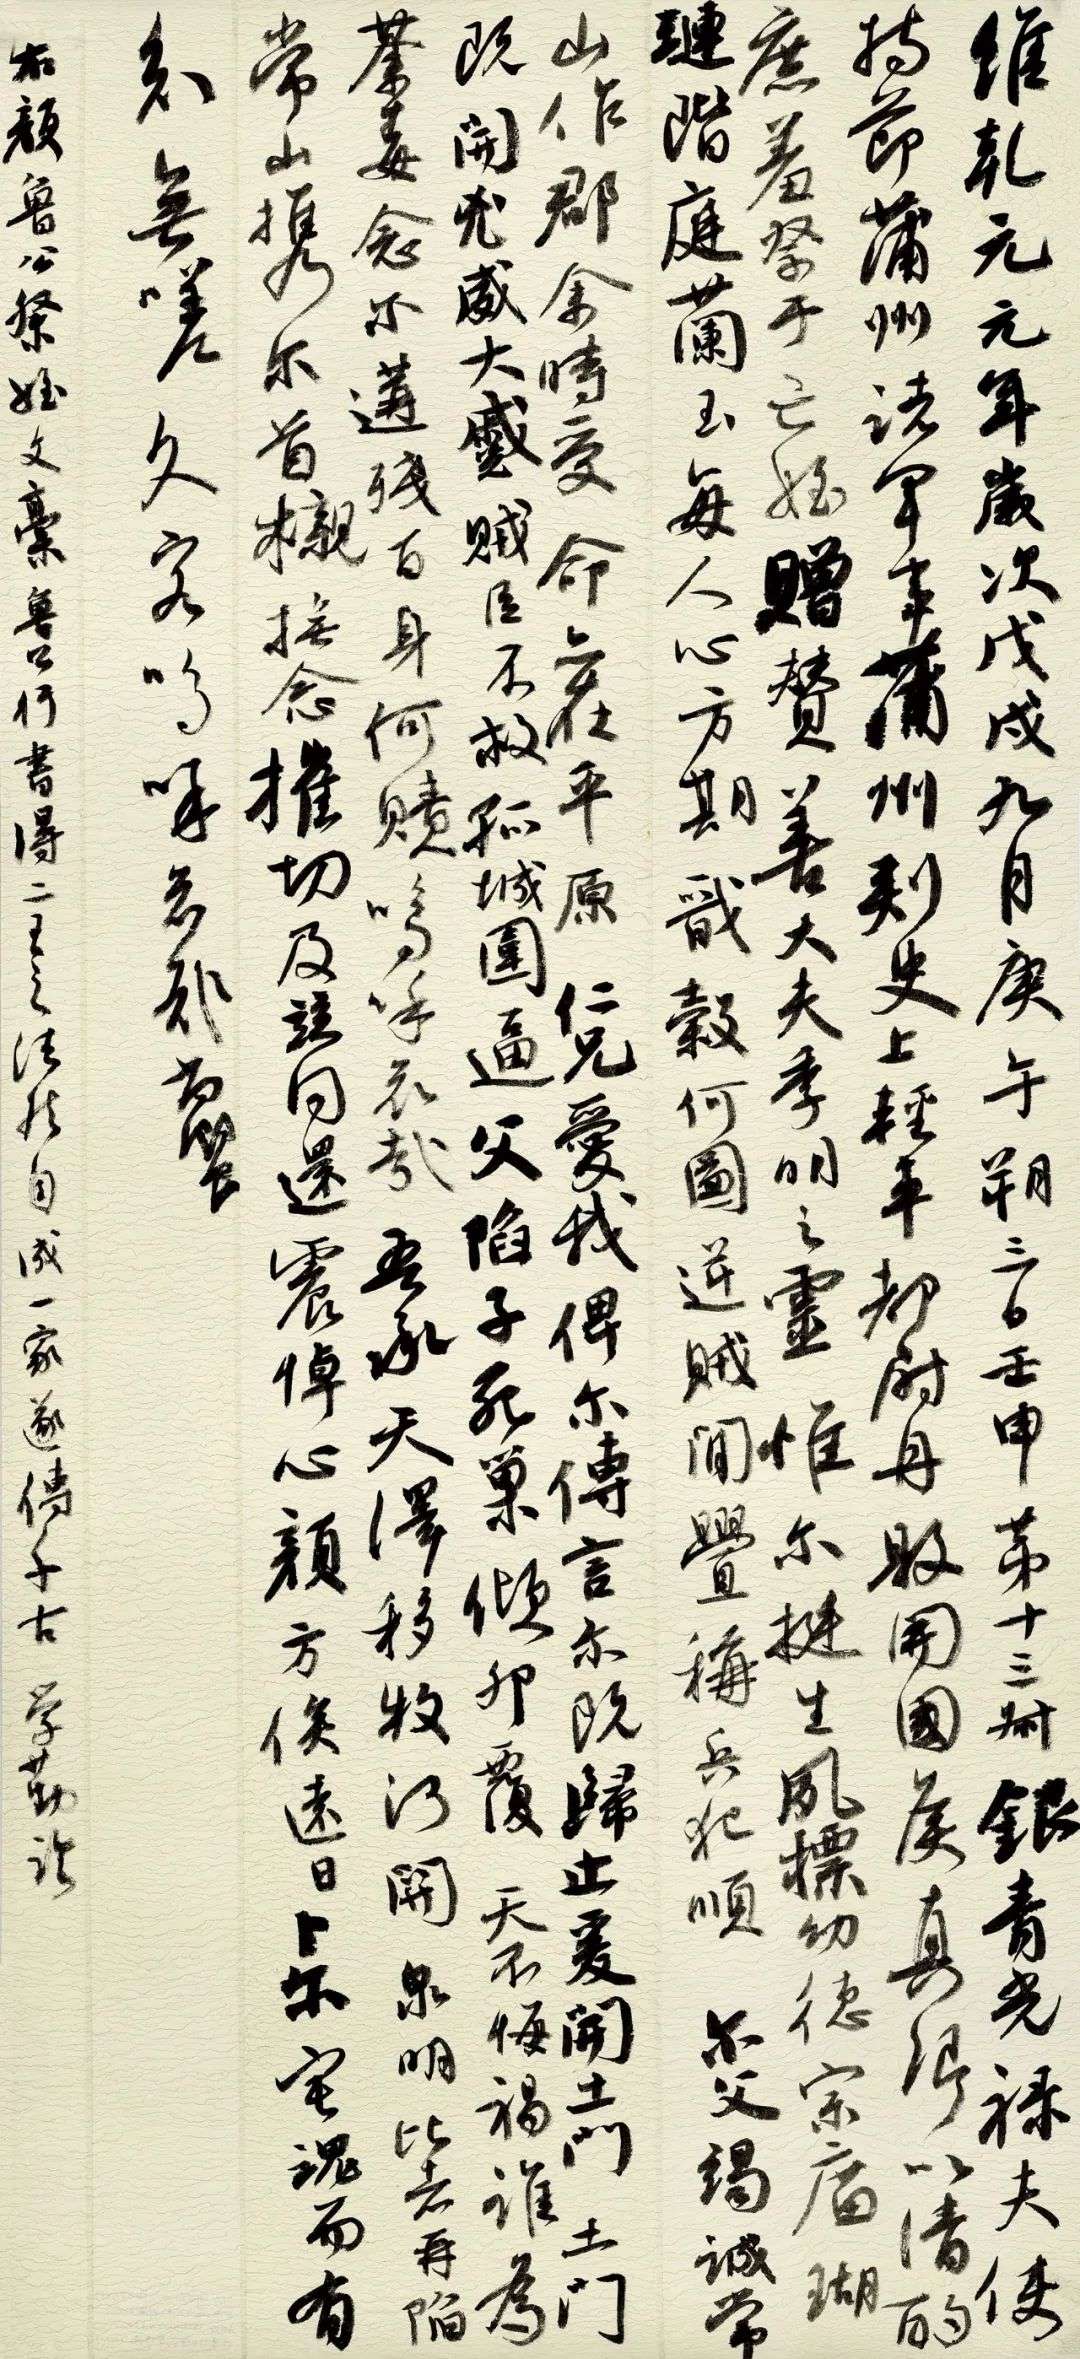 維乾元元年歲次戊戌九月庚午朔三日壬申第十三叔銀青光禄夫使
持節蒲州諸軍事蒲州刺史上輕車都尉丹陽開國侯真卿以清酌
庶羞祭于亡姪贈贊善大夫季明之靈惟尔挺生夙標幼德宗廟瑚
璉階庭蘭玉每人心方期戩穀何圖逆賊閒釁稱兵犯順尔父竭誠常
山作郡余時受命亦在平原仁兄愛我俾尔傳言尔既歸止爰開土門土門
既開凶威大蹙賊臣不救孤城圍逼父陷子死巢傾卵覆天不悔禍誰為
荼毒念尔遘殘百身何贖嗚呼哀哉吾承天澤移牧河關泉明比者再陷
常山攜尔首櫬撫念摧切及茲同還震悼心顏方俟遠日卜尔宅魂而有
知無嗟久客嗚呼哀哉尚饗
右顏魯公祭姪文稾魯公行書得二王之法於自成一家遂傳千古 学勤识